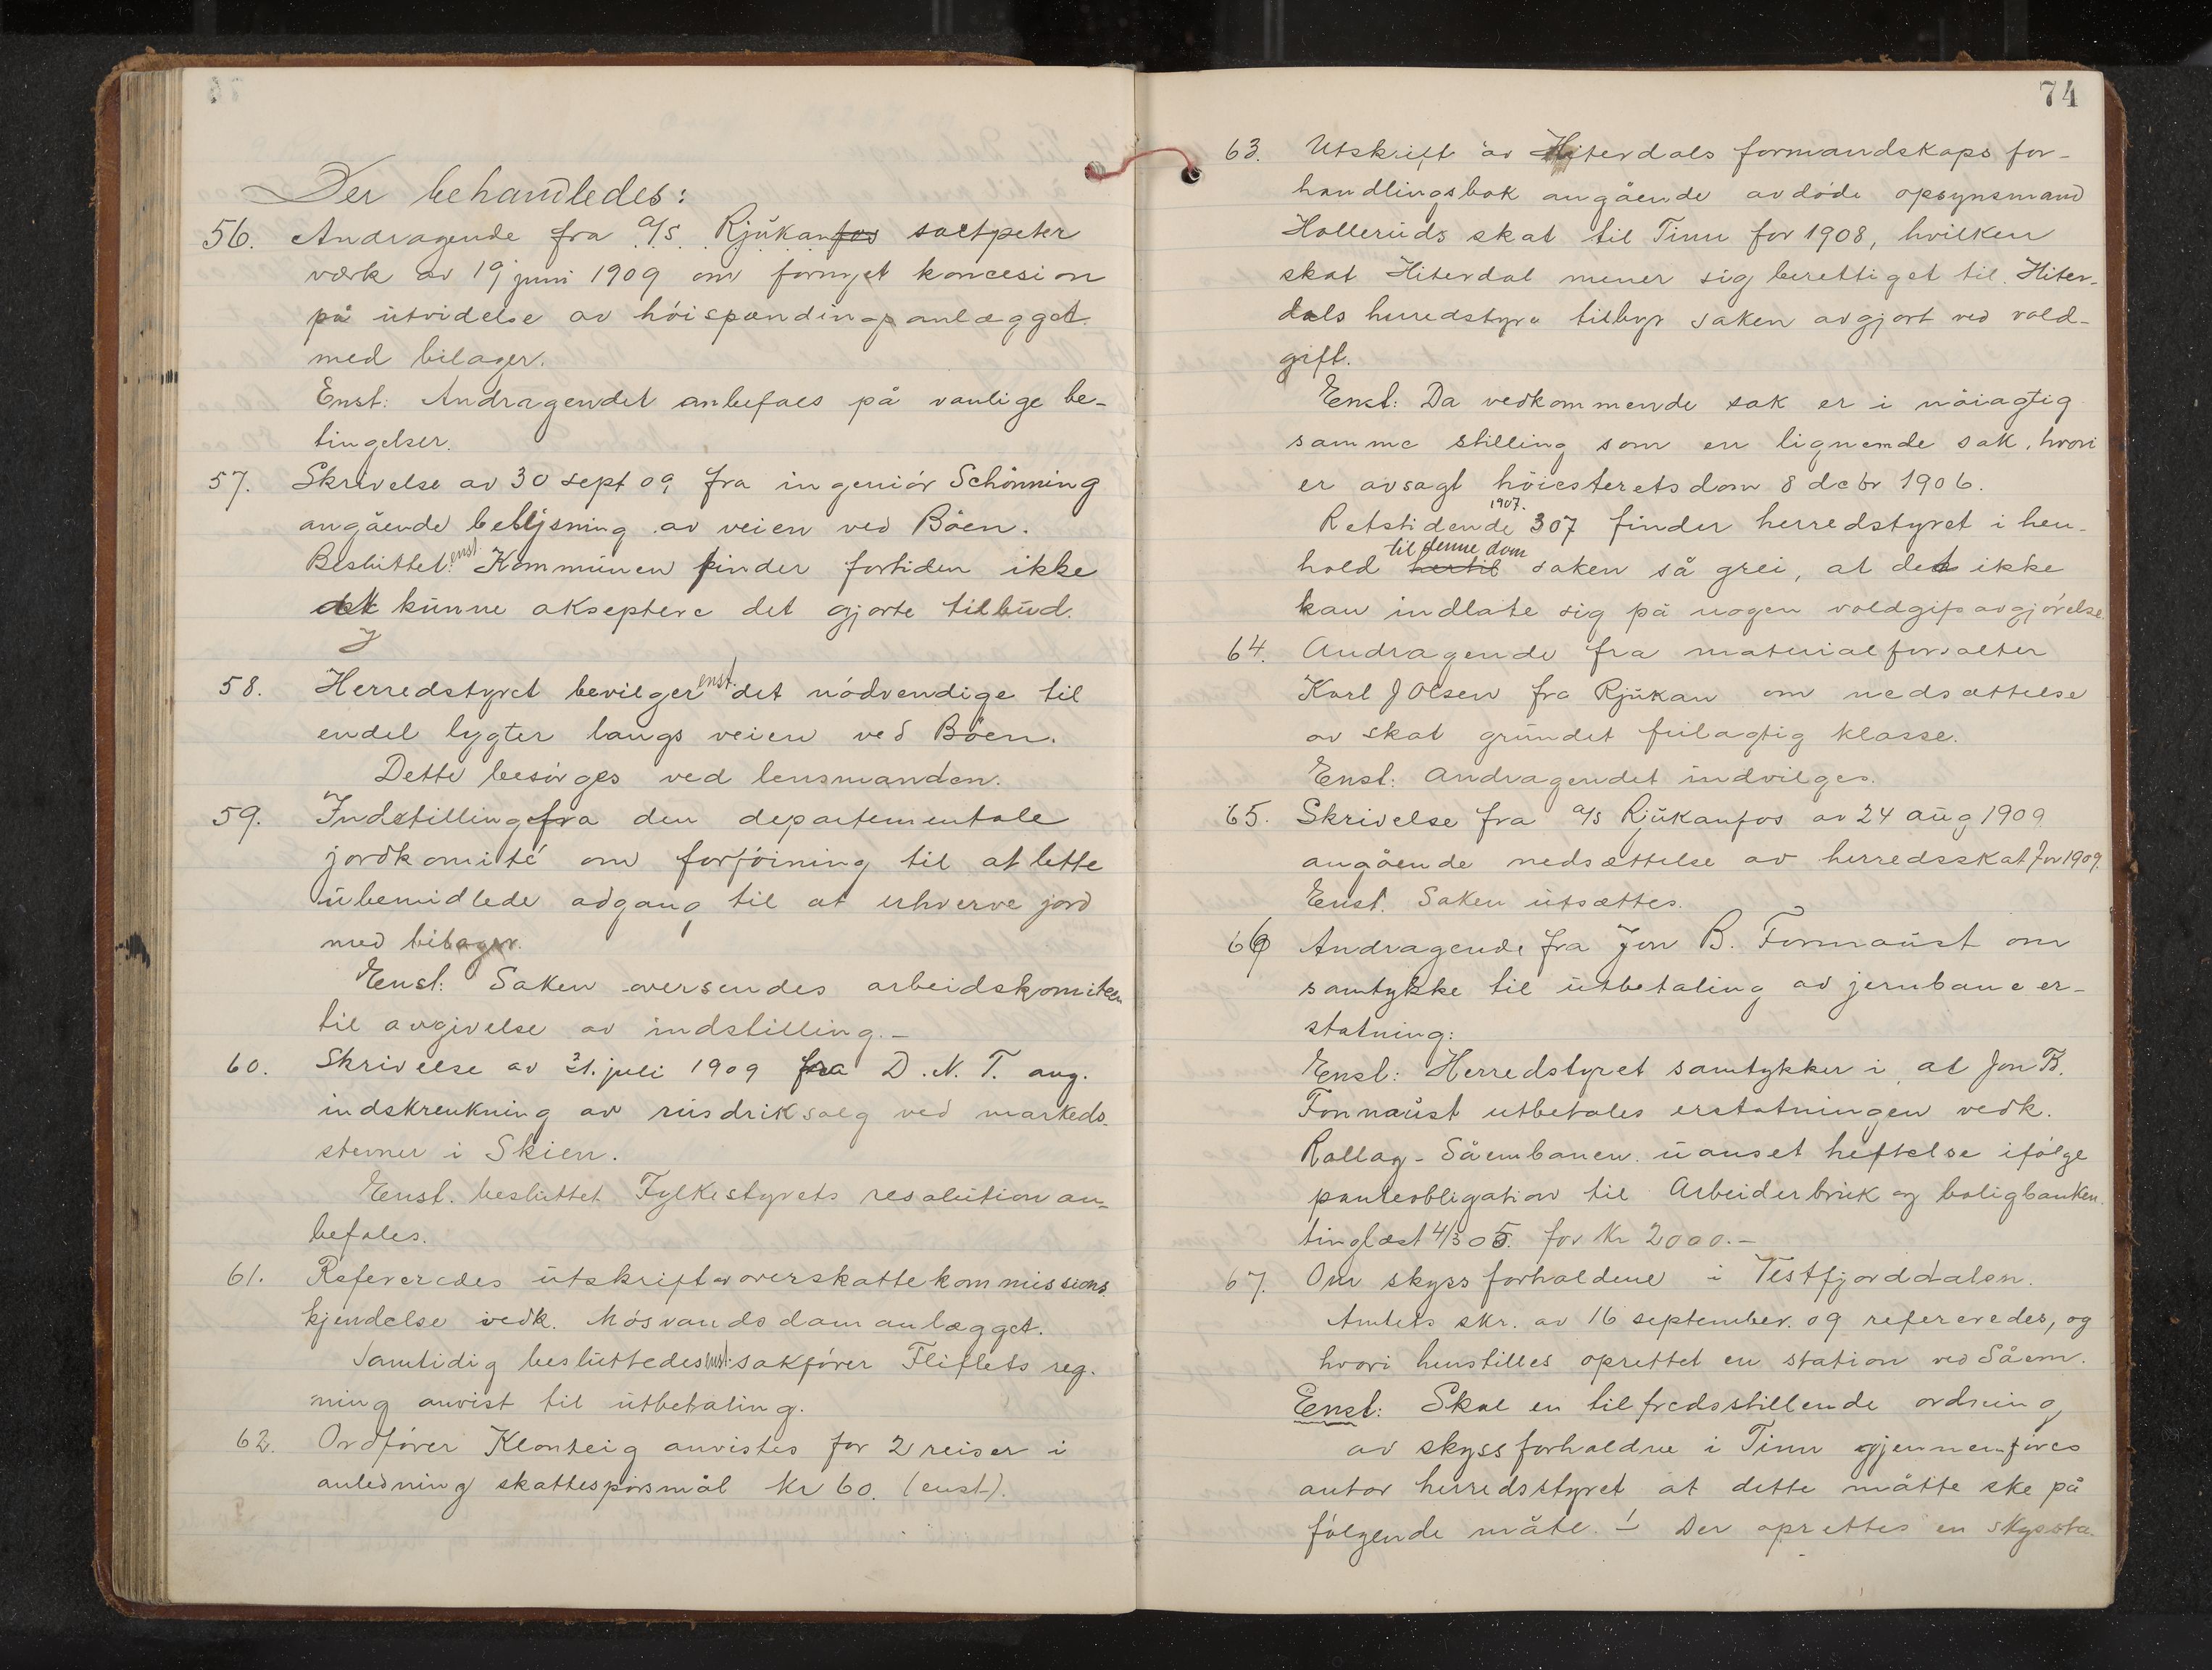 Der behandledes:
56. Andragende fra a/s Rjukanfos saltpeter
værk av 19 juni 1909 om fornyet koncesion
på utvidelse av höispændingsanlægget
med bilager.
Enst: Andragendet anbefales på vanlige be-
tingelser.
57. Skrivelse av 30 sept 09 fra ingeniör Schönning
angående belysning av veien ved Böen.
Besluttet enst: Kommunen finder fortiden ikke
at kunne akseptere det gjorte tilbud.
58. Herredstyret bevilger enst. det nödvendige til
endel lygter langs veien ved Böen.
Dette besörges ved lensmanden.
59. Indstilling fra den departementale
jordkomité om forföining til at lette
ubemidlede adgang til at erhverve jord
med bilager.
Enst: Saken oversendes arbeidskomiteen
til avgivelse av indstilling.-
60. Skrivelse av 31. juli 1909 fra D. N. T. ang.
indskrenkning av rusdriksalg ved markeds-
stevner i Skien.
Enst. besluttet Fylkestyrets resolution an-
befales.
61. Refereredes utskrift av overskattekommissions-
kjendelse vedk. Mösvandsdamanlægget.
Samtidig besluttedes enst: sakförer Fliflets reg-
ning anvist til utbetaling.
62. Ordförer Klonteig anvistes for 2 reiser i
anledning skattespörsmål Kr 60. (enst).
74
63. Utskrift av Hiterdals formandskaps for-
handlingsbok angående avdöde opsynsmand
Hollerüds skat til Tinn for 1908, hvilken
skat Hiterdal mener sig berettiget til. Hiter-
dals herredstyre tilbyr saken avgjort ved vold-
gift.
Enst: Da vedkommende sak er i nöiagtig
samme stilling som en lignende sak, hvori
er avsagt höiesteretsdom 8 decbr 1906.
Retstidende 1907. 307 finder herredstyret i hen-
hold hertil til denne dom saken så grei, at det ikke
kan indlate sig på nogen voldgifsavgjörelse.
64. Andragende fra materialforvalter
Karl J Olsen fra Rjukan om nedsættelse
av skat grundet feilagtig klasse.
Enst: Andragendet indvilges.
65. Skrivelse fra a/s Rjukanfos av 24 aug 1909
angående nedsættelse av herredsskat for 1909.
Enst. Saken utsættes.
66 Andragende fra Jon B. Fonnaust om
samtykke til utbetaling av jernbaneer-
statning:
Enst: Herredstyret samtykker i, at Jon B.
Fonnaust utbetales erstatningen vedk.
Rollag-Såembanen uanset heftelse ifölge
panteobligation til Arbeiderbruk og boligbanken
tinglæst 4/3 05. for Kr 2000.-
67. Om skyssforholdene i Vestfjorddalen.
Amtets skr. av 16 september. 09 refereredes, og
hvori henstilles oprettet en station ved Såem.
Enst: Skal en tilfredsstillende ordning
av skyssforholdne i Tinn gjennemföres
antar herredsstyret at dette måtte ske på
fölgende måte. ! Der oprettes en skyssta-